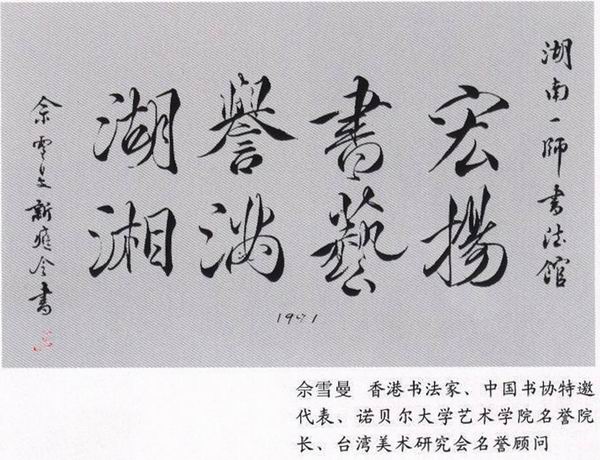 湖南一師書法館
宏揚
書藝
譽滿
湖湘
佘雪曼新癡令書
1991
佘雪曼 香港书法家、中国书协特邀
代表、诺贝尔大学艺术学院名誉院
长、台湾美术研究会名誉顾问